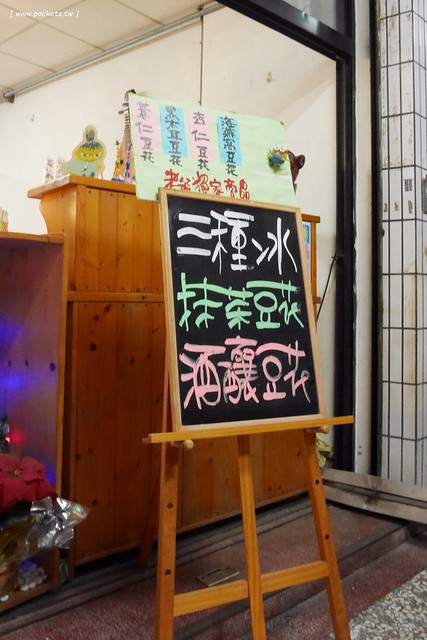 [ www.pockets.tw ]
薏仁豆花
黑木耳豆花
杏仁豆花
海燕窩豆花
老爸獨家商品
三種冰
抹茶豆花
酒釀豆花